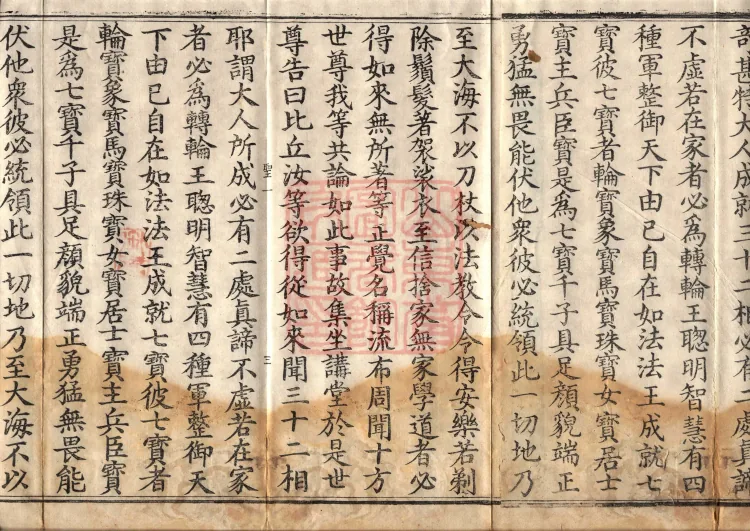 甚特大人成就三十二相必有二處眞諦
不虛若在家者必爲轉輪王聦明智慧有四
種軍整御天下由已自在如法法王成就七
寶彼七寶者輪寶象寶馬寶珠寶女寶居士
寶主兵臣寶是爲七寶千子具足顔貌端正
勇猛無畏能伏他衆彼必統領此一切地乃
至大海不以刀杖以法教令令得安樂若剃
除鬚髮著袈裟衣至信捨家無家學道者必
得如來無所著等正覺名稱流布周聞十方
世尊我等共論如此事故集坐講堂於是世
尊告曰比丘汝等欲得從如來聞三十二相
聖一 三
耶謂大人所成必有二處眞諦不虛若在家
者必爲轉輪王聦明智慧有四種軍整御天
下由已自在如法法王成就七寶彼七寶者
輪寶象寶馬寶珠寶女寶居士寶主兵臣寶
是爲七寶千子具足顔貌端正勇猛無畏能
伏他衆彼必統領此一切地乃至大海不以